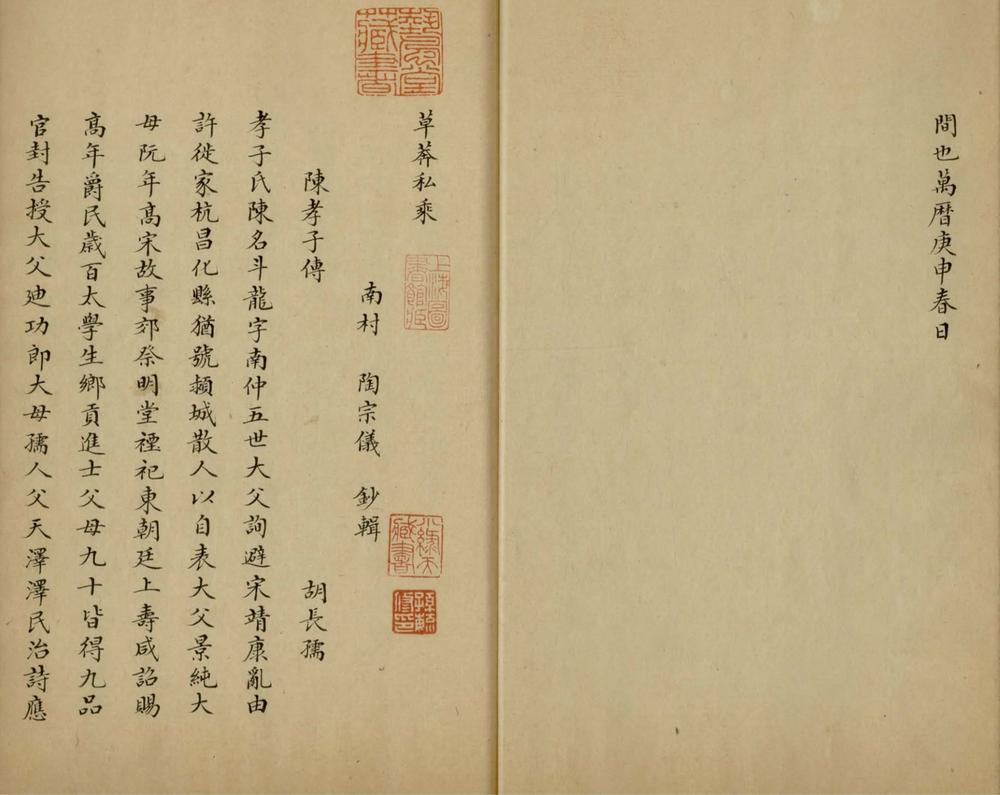 間也萬曆庚申春日
草莽私乘
南村 陶宗儀 鈔輯
陳孝子傳 胡長孺
孝子氏陳名斗龍字南仲五世大父詢避宋靖康亂由
許徙家杭昌化縣猶號潁城散人以自表大父景純大
母阮年高宋故事郊祭明堂禋祀東朝廷上壽咸詔賜
高年爵民歲百太學生鄉貢進士父母九十皆得九品
官封告授大父廸功郎大母孺人父天澤澤民治詩應
藝風堂藏書
上海圖書館藏